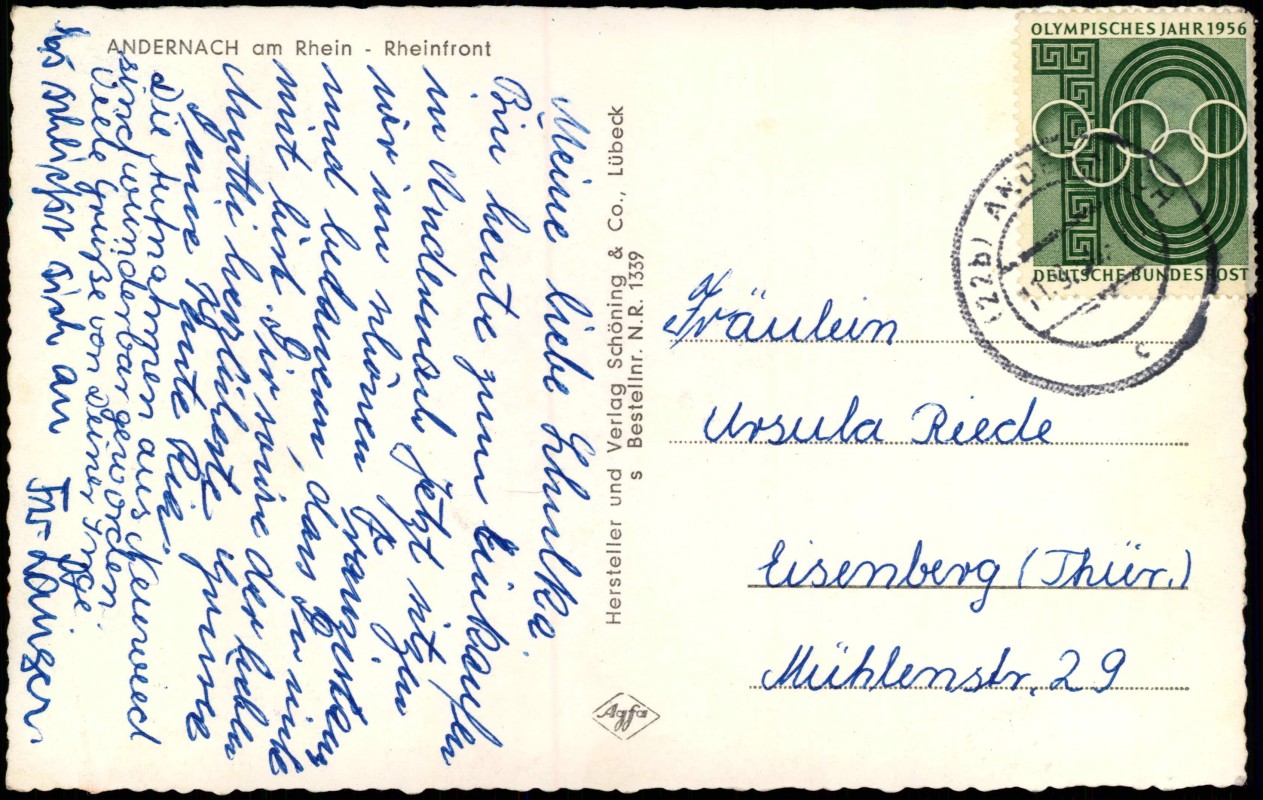 ANDERNACH am Rhein - Rheinfront
Meine liebe Schulka
Bin heute zum Einkaufen
in Andernach. Jetzt sitzen
wir im schönen Franziska
und bedauern, dass Du nicht
mit bist. Dir sowie der lieben
Mutti herzlichste Grüsse
Deine Tante Ria.
Die Aufnahmen aus Neuwied
sind wunderbar geworden
Viele Grüße von Deiner Inge.
Es schließt sich an
Frw. Langer
Hersteller und Verlag Schöning & Co., Lübeck
s Bestellnr. N.R. 1339
Agfa
OLYMPISCHES JAHR 1956
DEUTSCHE BUNDESPOST
(22b) ANDERNACH
11.9.
c
Fräulein
Ursula Riede
Eisenberg (Thür.)
Mühlenstr. 29